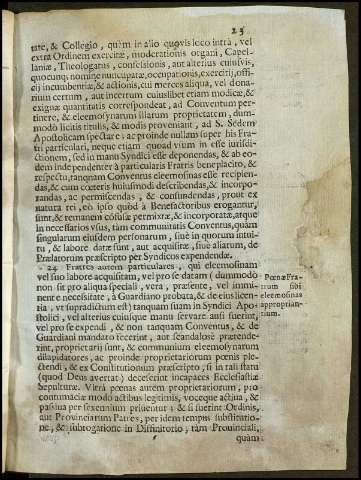 23
tate, & Collegio, quàm in alio quovis loco intrà, vel
extra Ordinem exercitæ, moderationis organi, Capel-
laniæ, Theologatus, confessionis, aut alterius cuiusvis,
quocunq; nomine nuncupatæ, occupationis, exercitij, offi-
cij incumbentiæ, & actionis, cui merces aliqua, vel dona-
rium certum, aut incertum cuiuslibet etiam modicæ, &
exiguæ quantitatis correspondeat, ad Conventum per-
tinere, & eleemosynarum illarum proprietatem, dum-
modò licitis titulis, & modis proveniant, ad S. Sedem
Apostolicam spectare: ac proinde nullam super his Fra-
tri particulari, neque etiam quoad vium in esse iurisdi-
ctionem, sed in manu Syndici esse deponendas, & ab eo-
dem independenter à particularis Fratris beneplacito, &
respectu, tanquam Conventus eleemosinas esse recipien-
das, & cum cæteris huiusmodi describendas, & incorpo-
randas, ac permiscendas, & consumendas, prout ex
natura rei, eò ipso quòd à Benefactoribus erogantur,
sunt, & remanent cōfusæ permixtæ, & incorporatæ, atque
in necessarios vsus, tàm communitatis Conventus, quàm
singularum eiusdem personarum, sivè in quorum intui-
tu, & labore datæ sunt, aut acquisitæ, sivè aliarum, de
Prælatorum præscripto per Syndicos expendendæ.
24 Fratres autem particulares, qui eleemosinam
vel suo labore acquisitam, vel pro se datam (dummodò
non sit pro aliqua speciali, vera, præsente, vel immi-
nente necessitate, à Guardiano probata, & de eius licen-
tia, vt supradictum est) tanquam suam in Syndici Apo-
stolici, vel alterius cuiusque manu servare ausi fuerint,
vel pro se expendi, & non tanquam Conventus, & de
Guardiani mandato fecerint, aut scandalosè prætende-
rint, proprietarij sunt, & communium eleemosynarum
dilapidatores, ac proinde proprietariorum pœnis ple-
ctendi, & ex Constitutionum præscripto, si in tali statu
(quod Deus avertat) decesserint incapaces Ecclesiasticæ
Sepulturæ. Vltra pœnas autem proprietariorum, pro
contumaciæ modo actibus legitimis, voceque activa, &
passiva per sexennium priventur; & si fuerint Ordinis,
aut Provinciarum Patres, per idem tempus substitutio-
ne, & subrogatione in Diffinitorio, tàm Provinciali,
quàm
Pœnæ Fra-
trum sibi
eleemosinas
approprian-
tium.